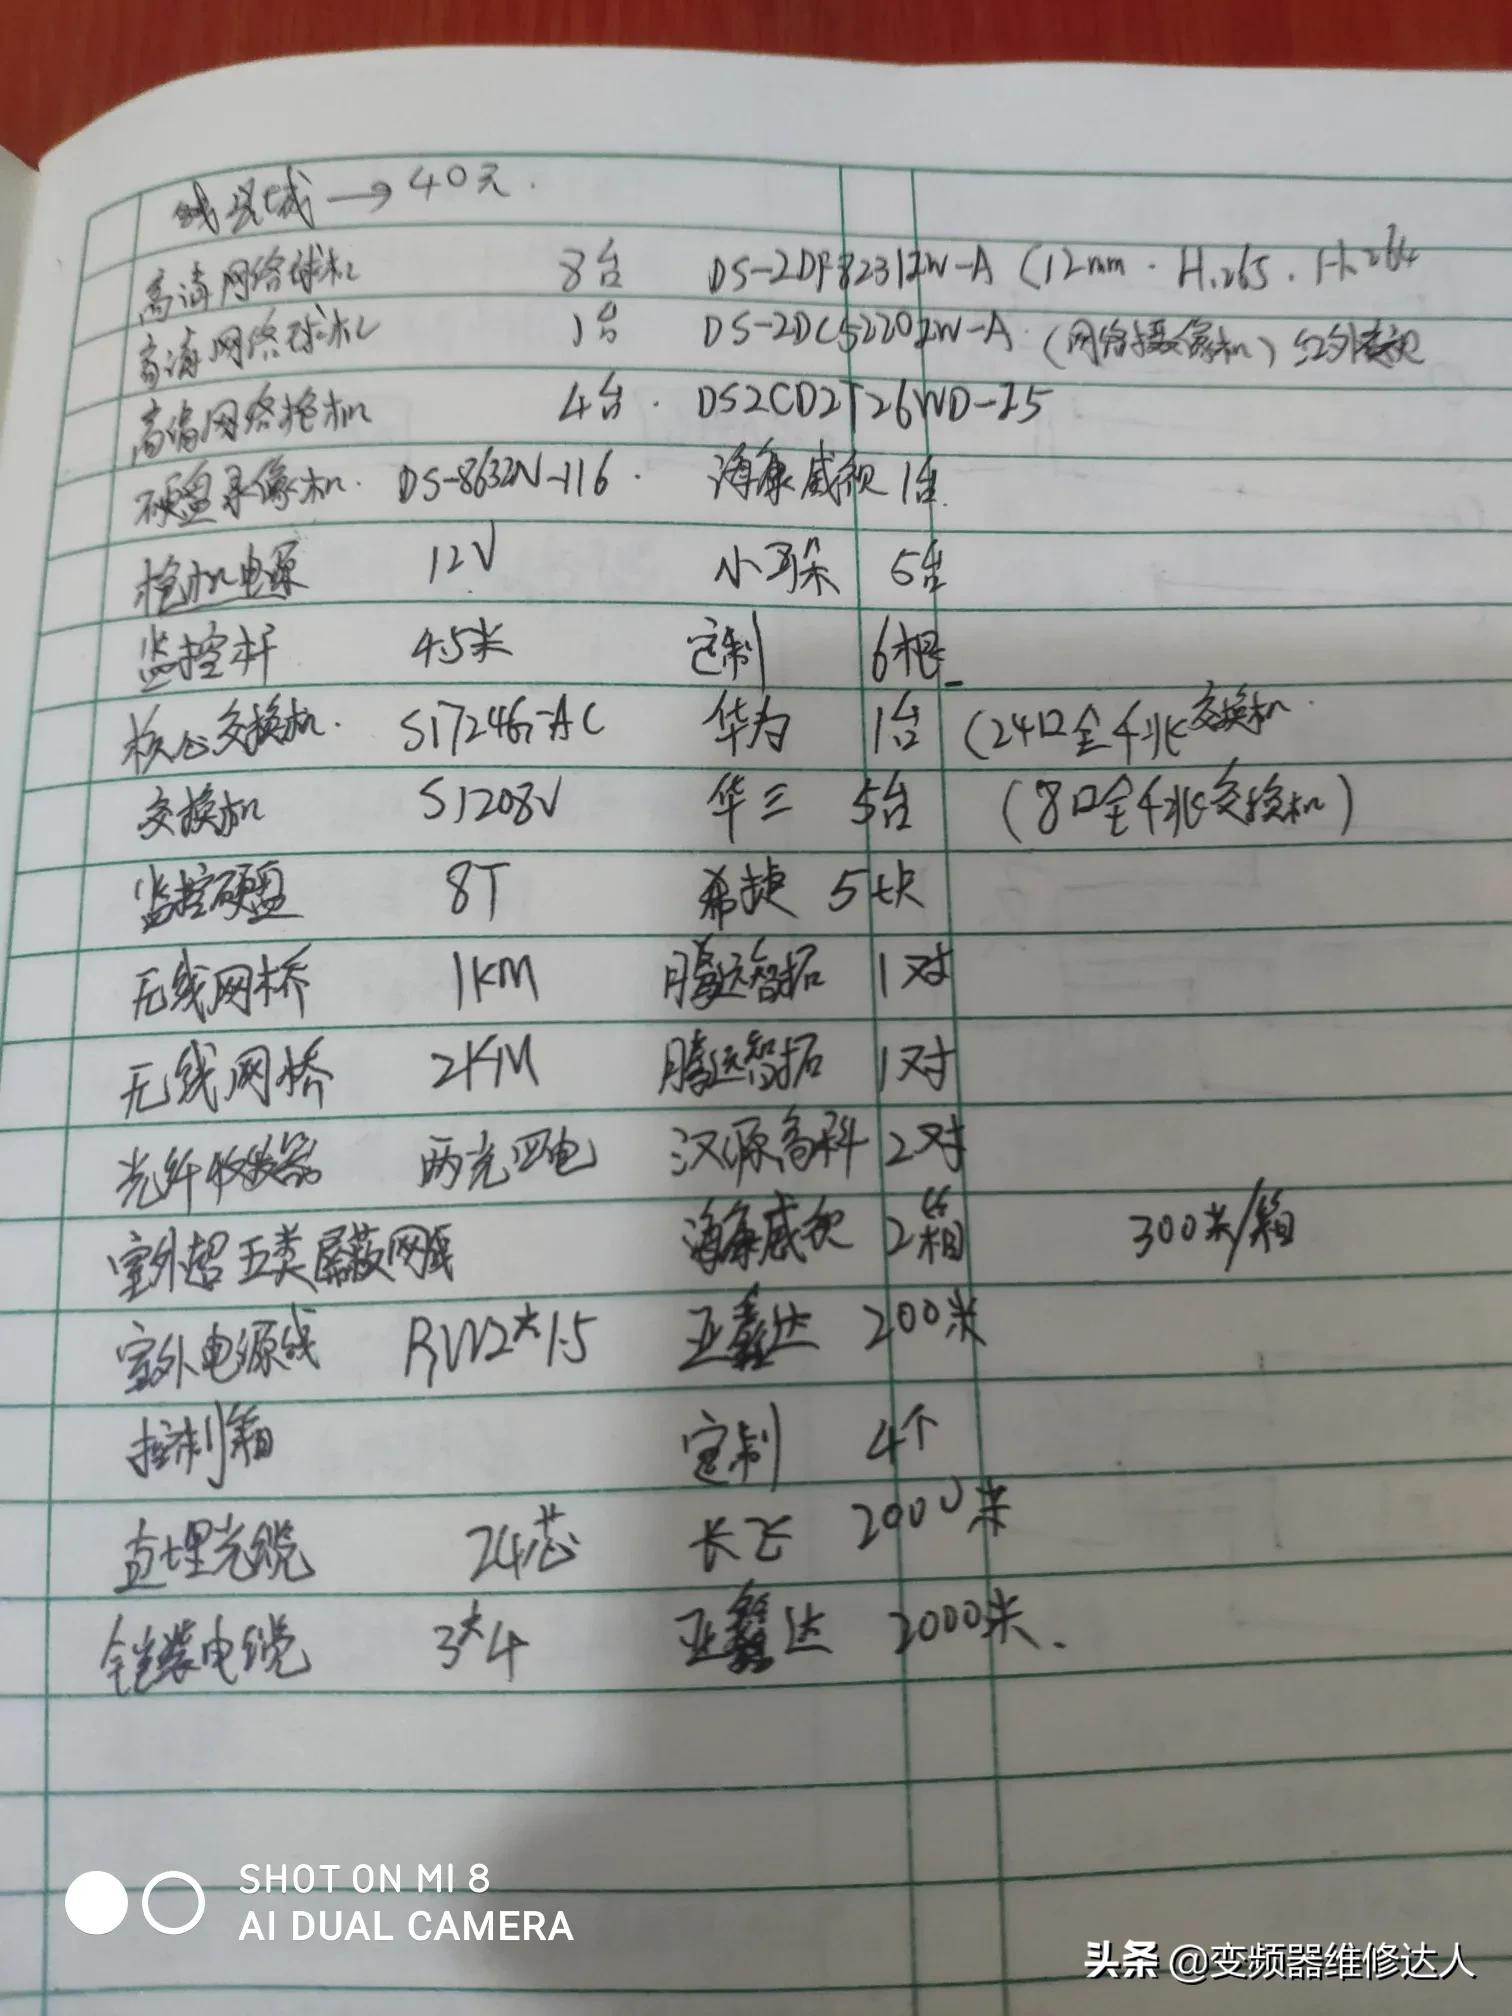 线区域→40元.
高清网络球机 8台 DS-2DF8231IW-A (12mm.H.265.H.264
高清网络球机 1台 DS-2DC5220IW-A.(网络摄像机)红外
高清网络枪机 4台. DS2CD2T26WD-I5
硬盘录像机. DS-8632N-I16. 海康威视 1台.
枪机电源 12V 小耳朵 5台
监控杆 4.5米 定制 6根
核心交换机. S1724G-AC 华为 1台 (24口全千兆交换机.
交换机 S1208V 华三 5台 (8口全千兆交换机)
监控硬盘 8T 希捷 5块
无线网桥 1KM 腾远智拓 1对
无线网桥 2KM 腾远智拓 1对
光纤收发器 两光四电 汉源高科 2对
室外超五类屏蔽网线 海康威视 2箱 300米/箱
室外电源线 RVV2*1.5 亚鑫达 200米
控制箱 定制 4个
直埋光缆 24芯 长飞 2000米
铠装电缆 3*4 亚鑫达 2000米.
SHOT ON MI 8
AI DUAL CAMERA
头条 @变频器维修达人